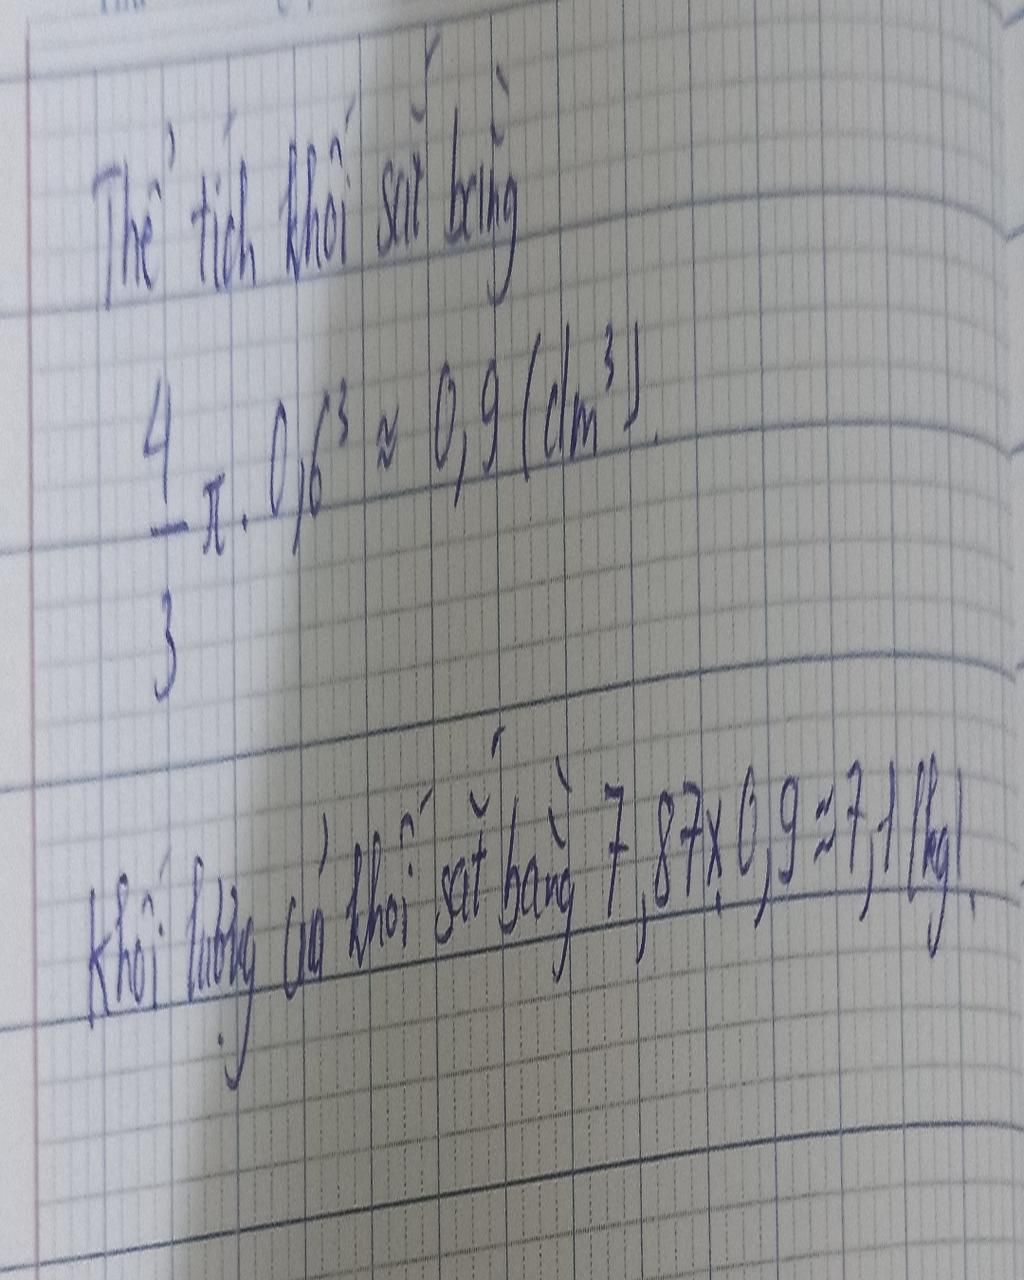 Thể tích khối sắt bằng
4/3 π . 0,6³ ≈ 0,9 (dm³).
Khối lượng của khối sắt bằng 7,87 x 0,9 ≈ 7,1 (kg).